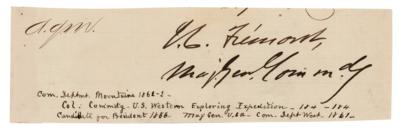 J. C. Frémont,
Maj Gen. Com'n d'g
Com. Deptmt. Mountains 1862-3 -
Col: Comm'dg - U.S. Western Exploring Expedition -
Candidate for President 1856 Maj Gen U.S.A - Com. Dept West. 1861 -